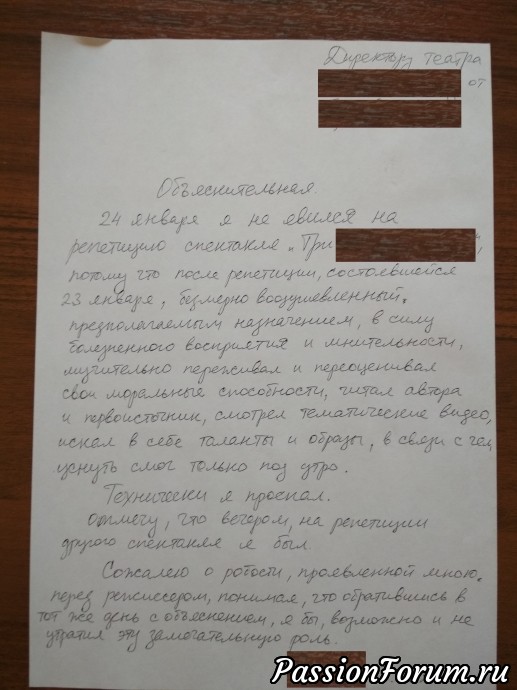 Директору театра
от
Объяснительная.
24 января я не явился на
репетицию спектакля „Три ",
потому что после репетиции, состоявшейся
23 января, безмерно воодушевленный
предполагаемым назначением, в силу
болезненного восприятия и мнительности,
мучительно переживал и переоценивал
свои моральные способности, читал автора
и первоисточник, смотрел тематические видео,
искал в себе таланты и образы, в связи с чем
уснуть смог только под утро.
Технически я проспал.
Отмечу, что вечером, на репетиции
другого спектакля я был.
Сожалею о робости, проявленной мною
перед режиссером, понимая, что обратившись в
тот же день с объяснением, я бы, возможно и не
утратил эту замечательную роль.
PassionForum.ru